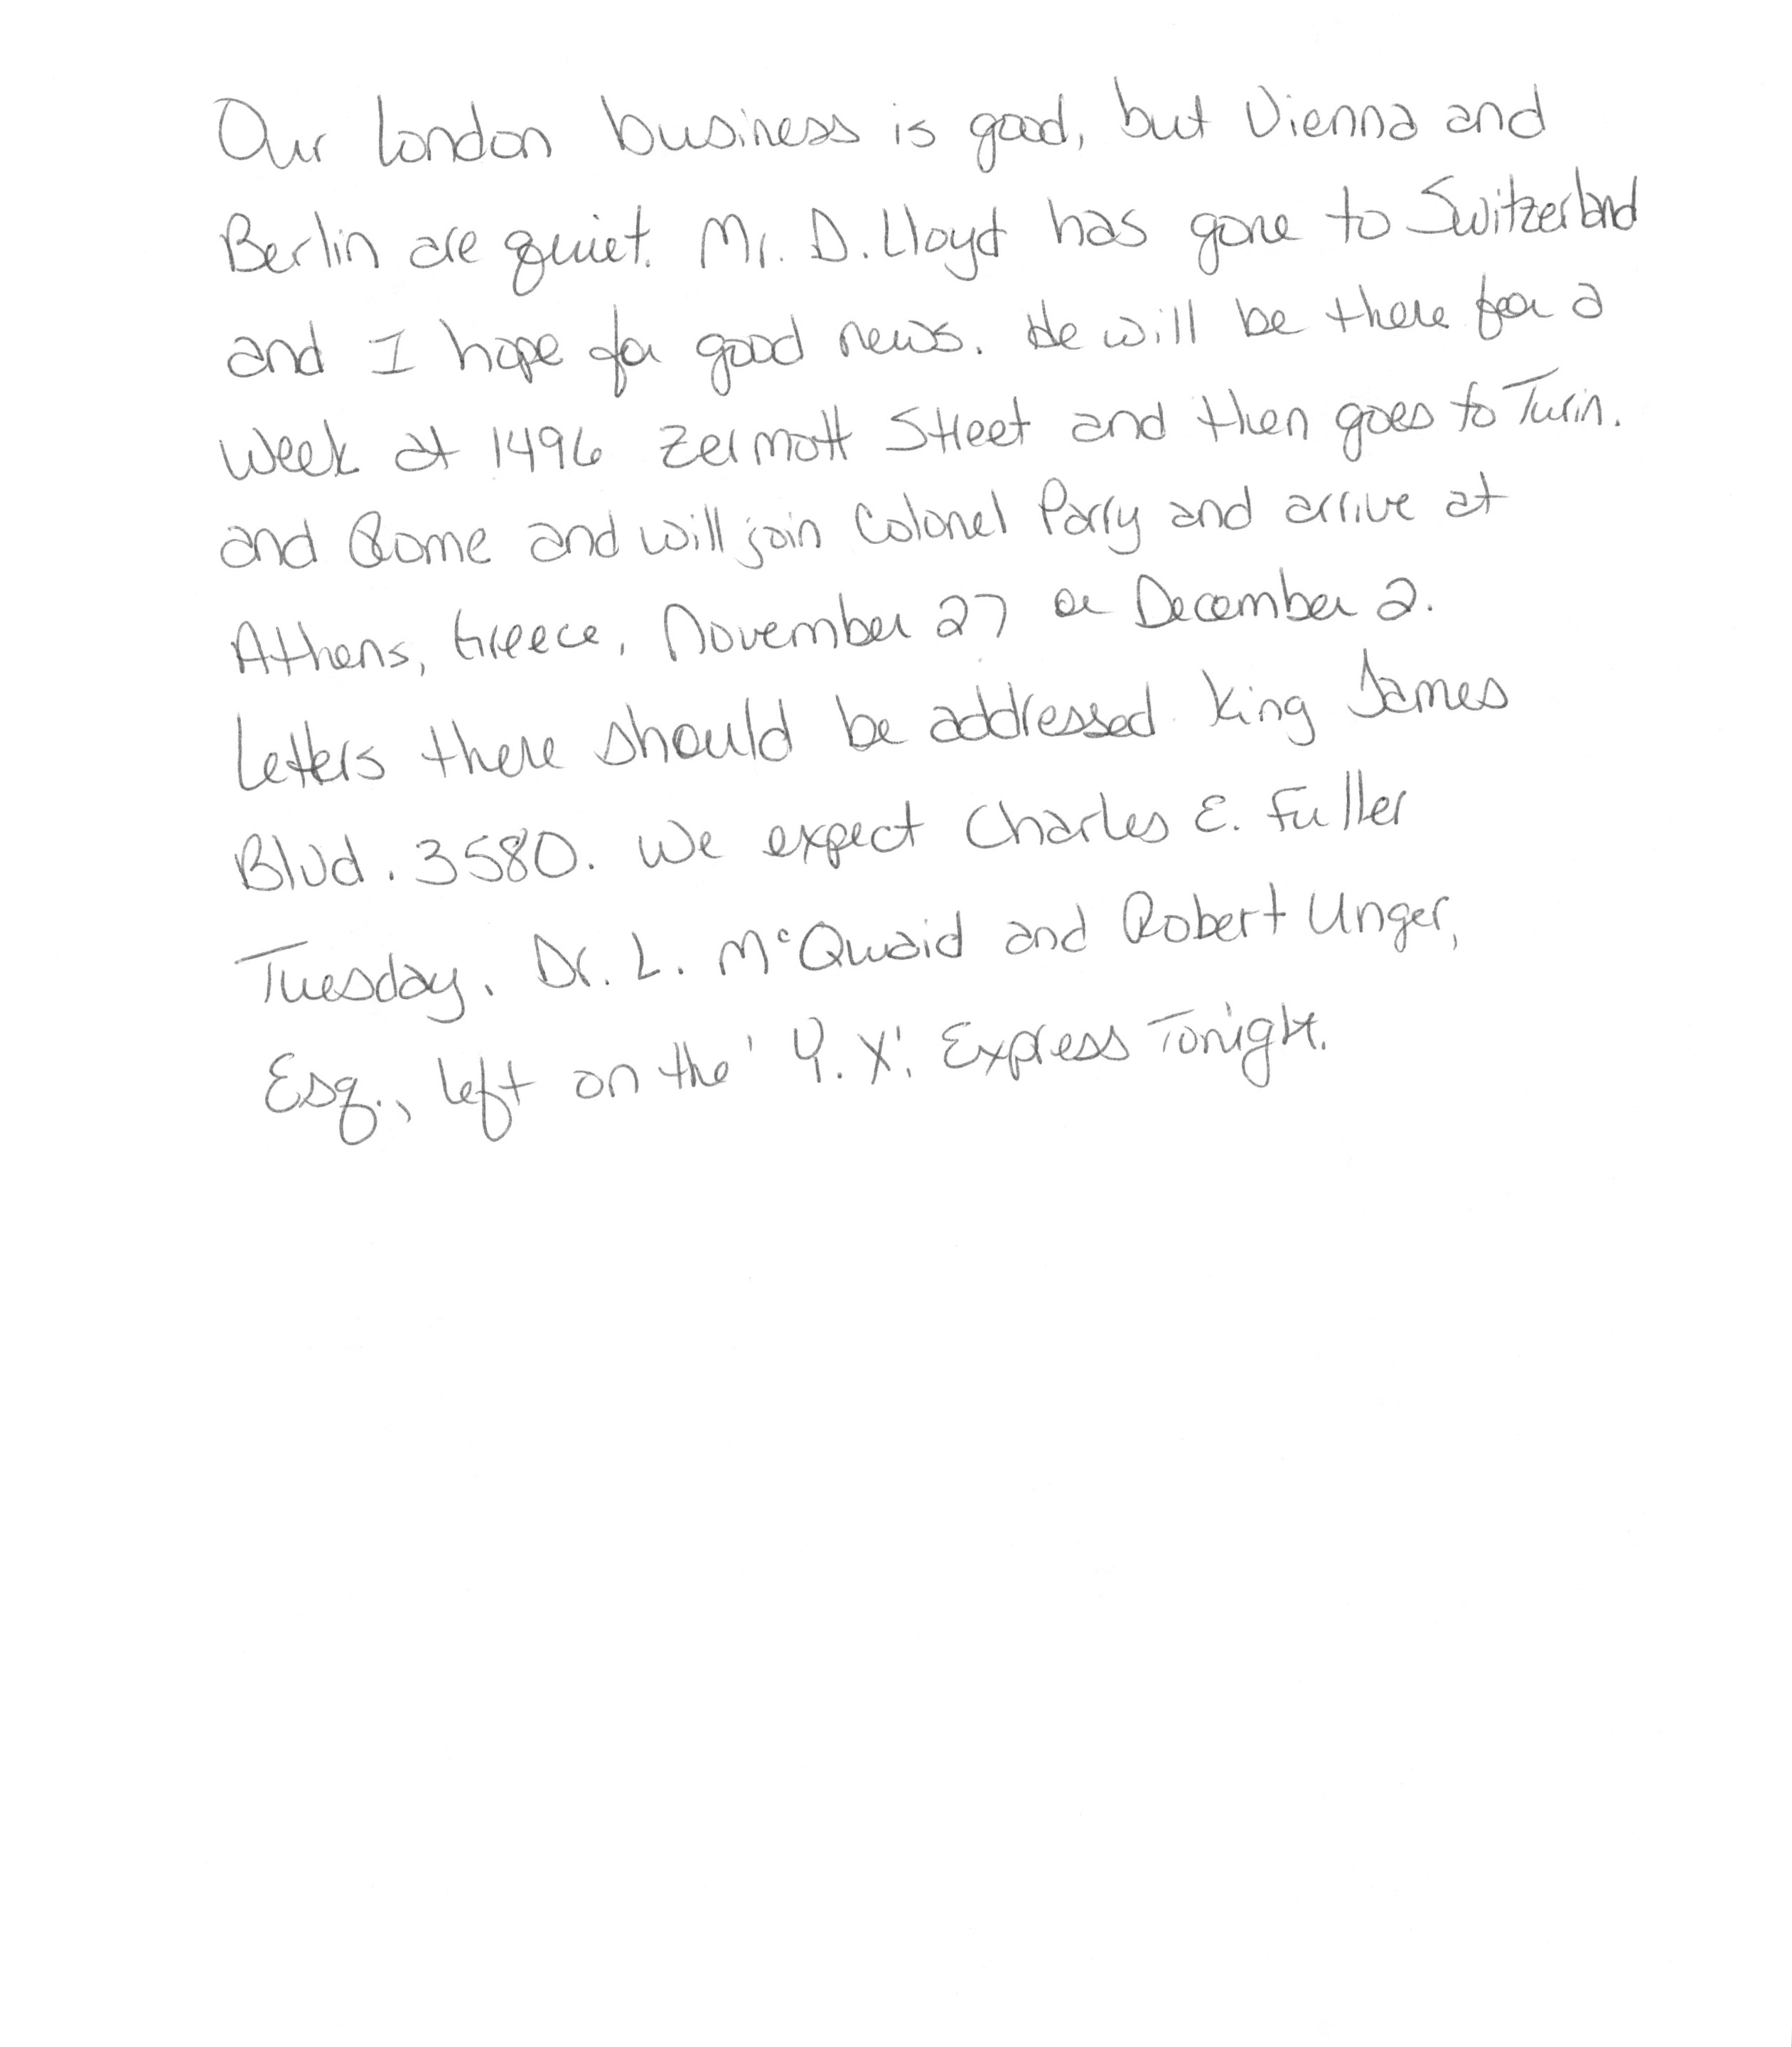 Our London business is good, but Vienna and
Berlin are quiet. Mr. D. Lloyd has gone to Switzerland
and I hope for good news. He will be there for a
week at 1496 Zermott Street and then goes to Turin.
and Rome and will join Colonel Parry and arrive at
Athens, Greece, November 27 or December 2.
Letters there should be addressed King James
Blvd. 3580. We expect Charles E. Fuller
Tuesday. Dr. L. McQuaid and Robert Unger,
Esq., left on the 'Y. X.' Express Tonight.